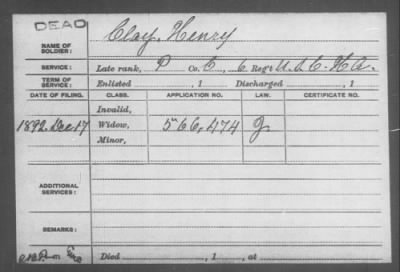 DEAD
NAME OF SOLDIER: Clay, Henry
SERVICE: Late rank, P Co. C, 6 Reg't U.S.C.H.A.
TERM OF SERVICE: Enlisted , 1 Discharged , 1
DATE OF FILING. CLASS. APPLICATION NO. LAW. CERTIFICATE NO.
Invalid,
1892 Dec 17 Widow, 566,474 J
Minor,
ADDITIONAL SERVICES:
REMARKS:
Died , 1 , at